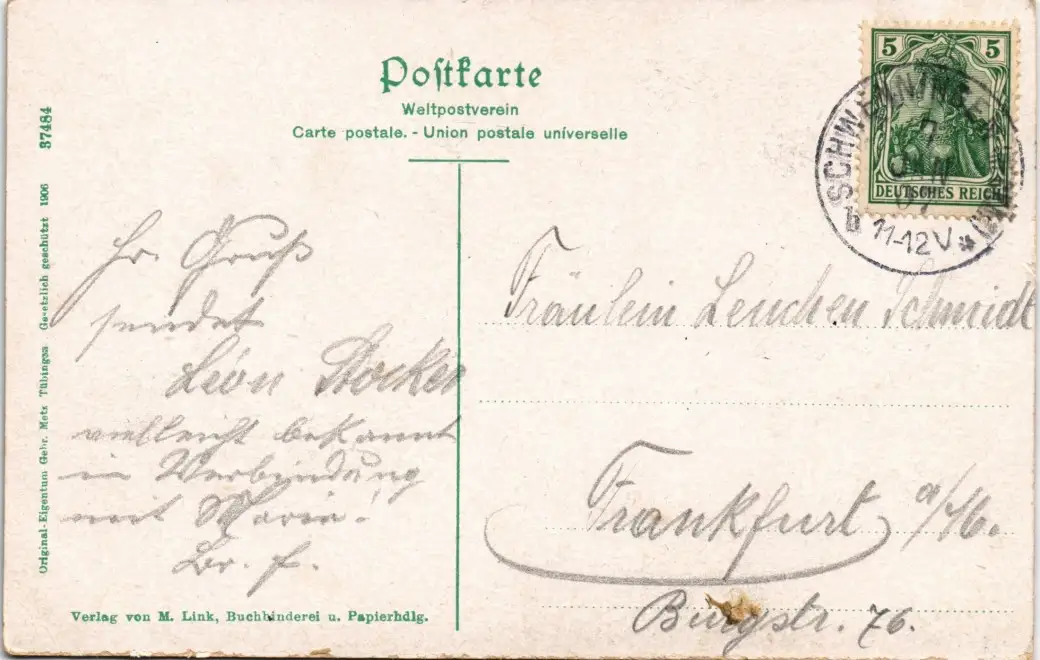 Postkarte
Weltpostverein
Carte postale. - Union postale universelle
5 5
DEUTSCHES REICH
SCHWENNINGEN
11-12V
b
37484
Original-Eigentum Gebr. Metz Tübingen Gesetzlich geschützt 1906
Hr. Gruß
sendet
Léon Stocker
vielleicht bekannt
in Verbindung
mit Maria.
Br. f.
Verlag von M. Link, Buchbinderei u. Papierhdlg.
Fräulein Lenchen Schmidt
Frankfurt a/M.
Burgstr. 76.